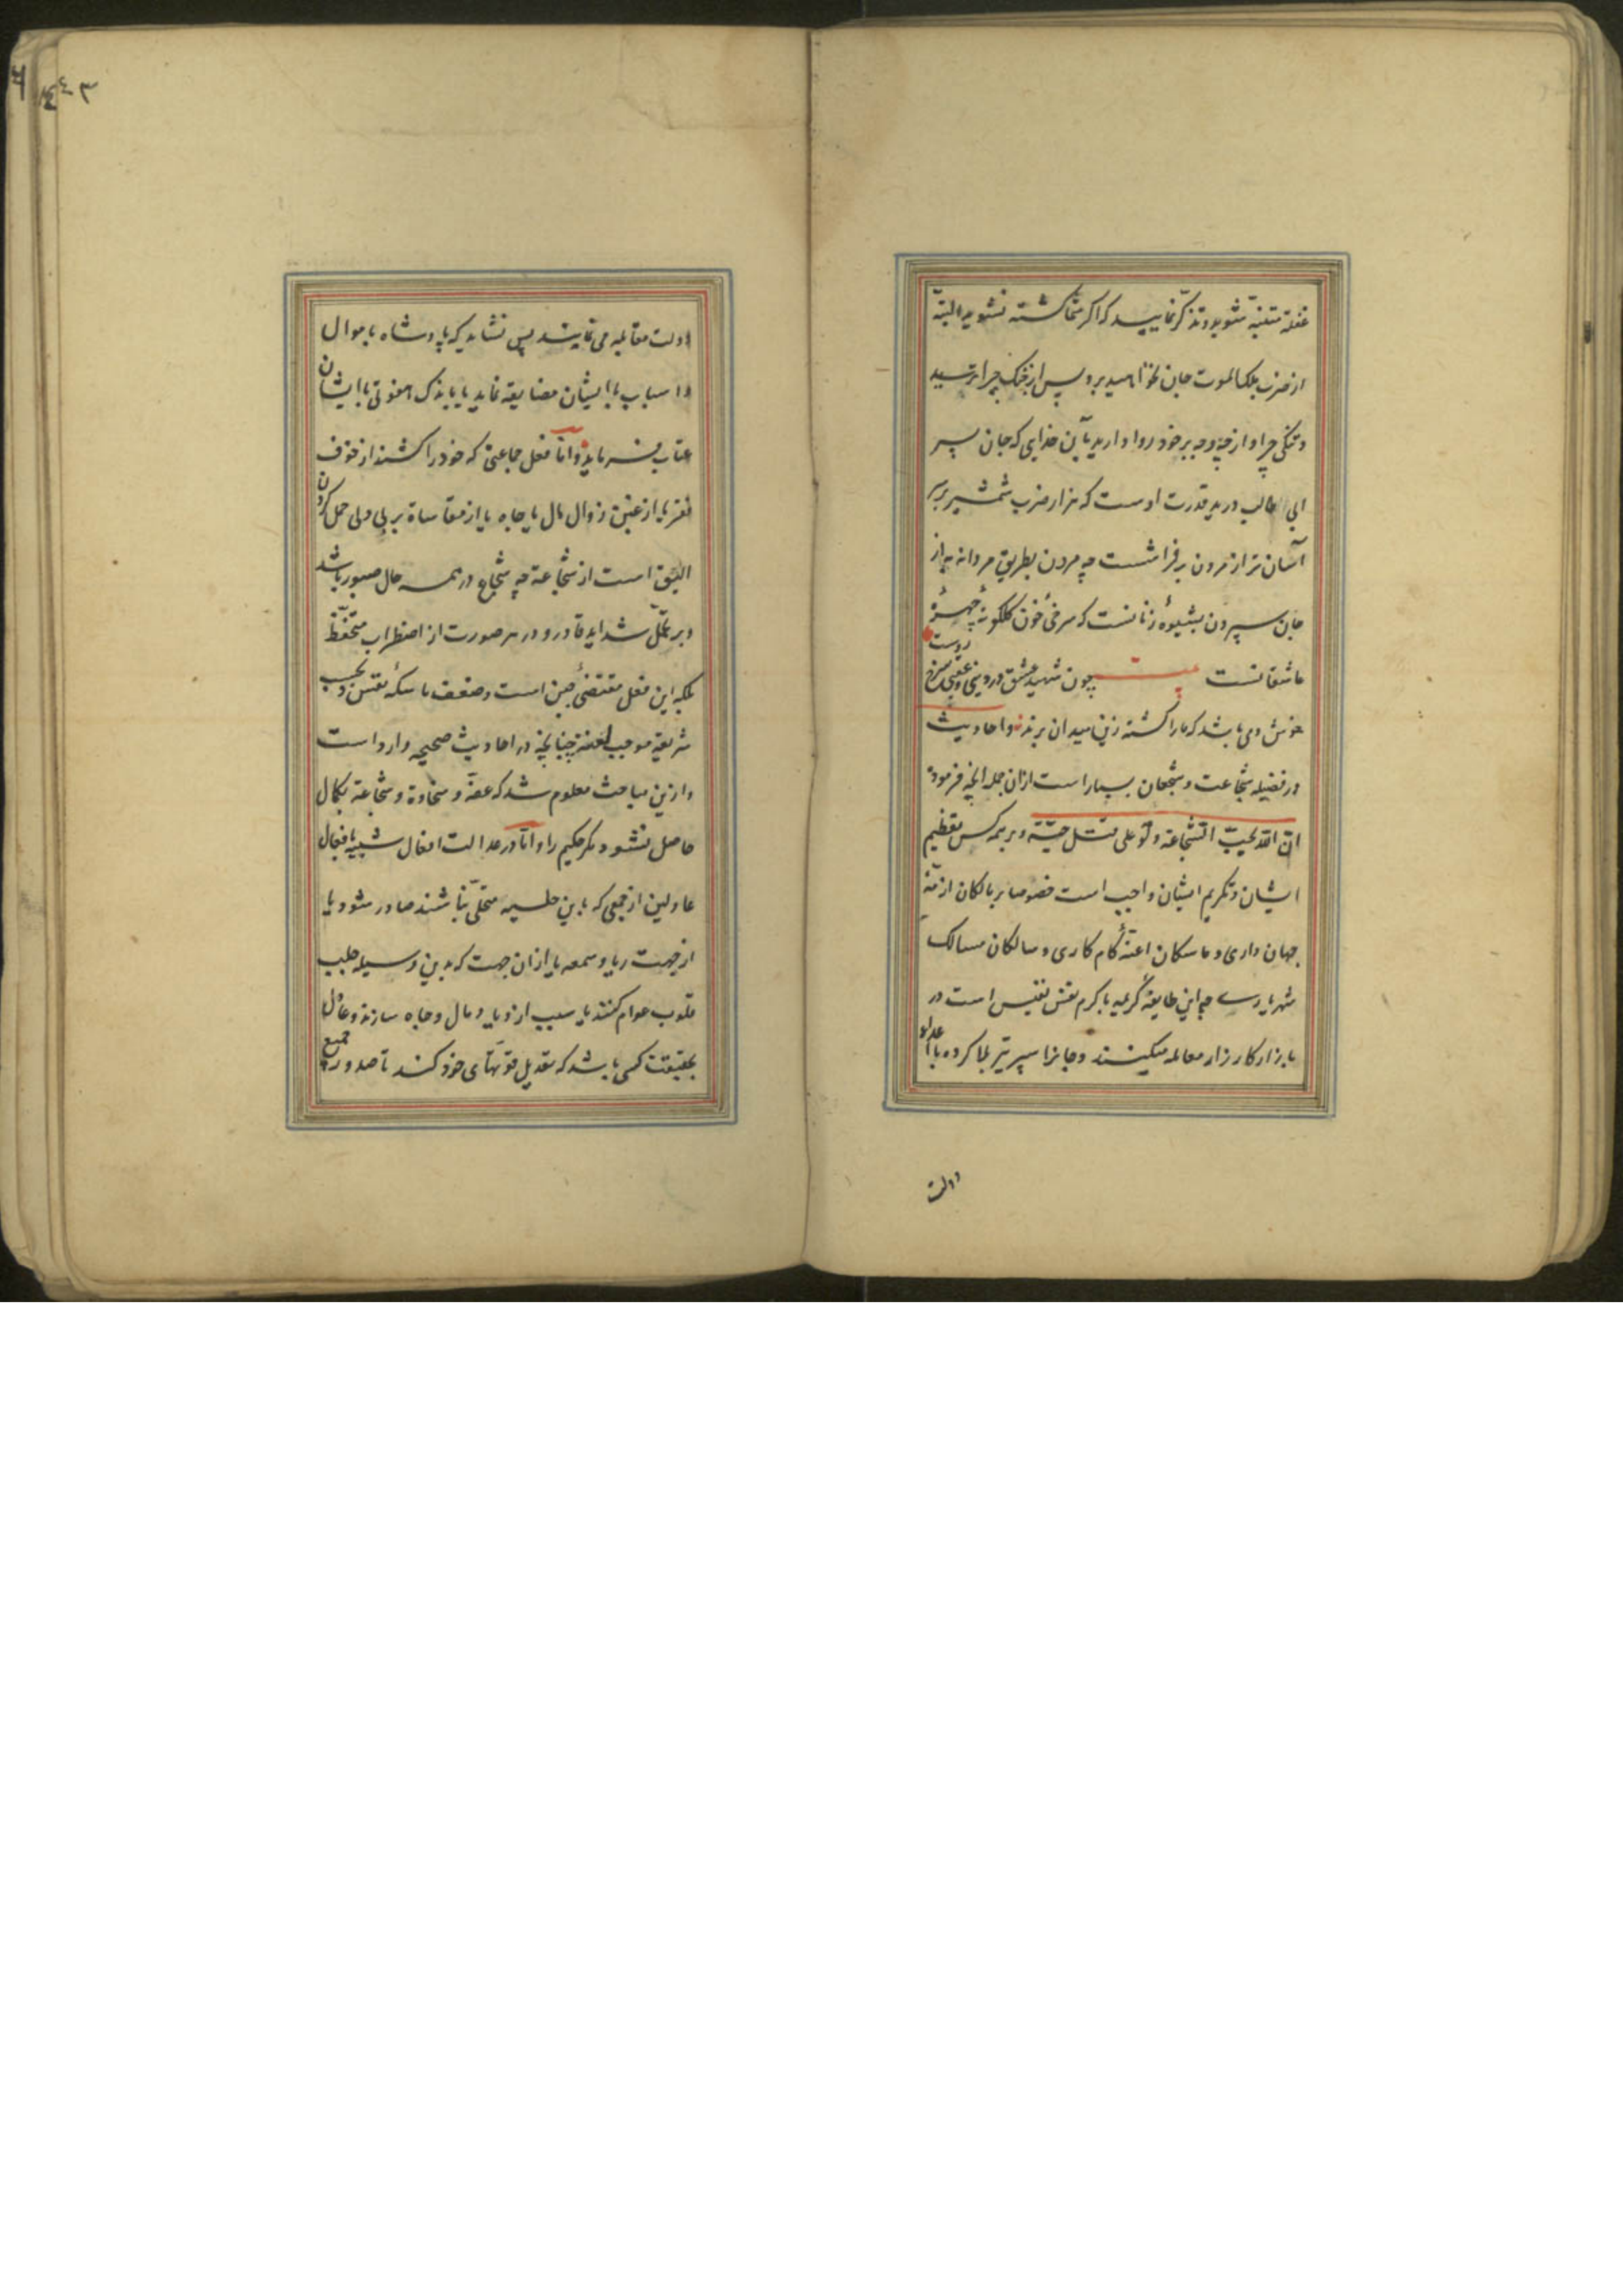 غفلة متنبّه شوید و تذکّر نمایید که اکر شما کشته نشوید البتّه
از ضرب ملک الموت جان نخواهید برد پس از جنک چرا ترسید
و ننکی چرا و از چه وجه بر خود روا دارید بآن خدایی که جان پسر
ابی طالب در ید قدرت اوست که هزار ضرب شمشیر بر سر
آسان تر از مردن بر فراشست چه مردن بطریق مردانه به از
جان سپردن بشیوهٔ زنانست که سرخیٔ خون کلکونهٔ چهرهٔ
عاشقانست بیت چون شهید عشق در دنیی و عقبی سرخ روست
خوش دمی باشد که ما را کشته زین میدان برند و احادیث
در فضیله شجاعت و شجعان بسیار است از ان جمله انچه فرموده
انّ الله یحبّ الشّجاعة ولو علی قتل حیّة و بر همه کس تعظیم
ایشان و تکریم ایشان واجب است خصوصا بر مالکان ازمّهٔ
جهان داری و ماسکان اعنّهٔ کام کاری و سالکان مسالک
شهریاری چه این طایفهٔ کریمه باکرم نفس نفیس است در
بازار کارزار معامله میکنند و جانرا سپر تیر بلا کرده با اعداء
دولت
دولت مقابله می نمایند پس نشاید که پادشاه باموال
و اسباب با ایشان مضایقه نماید یا باندک هفوتی با ایشان
عتاب فرماید و امّا فعل جماعتی که خود را کشند از خوف
فقر یا از غبن زوال مال یا جاه یا از مقاساة بر بد دلی حمل کردن
الیق است از شجاعة چه شجاع در همه حال صبور باشد
و بر تحمّل شداید قادر و در هر صورت از اضطراب متحفّظ
بلکه این فعل مقتضیٔ جبن است و ضعف ماسکهٔ نفس و بحسب
شریعة موجب لعنة چنانچه در احادیث صحیحه وارد است
و ازین مباحث معلوم شد که عفّة و سخاوة و شجاعة بکمال
حاصل نشود مکر حکیم را و امّا در عدالت افعال شبیه بافعال
عادلین از جمعی که باین حلیه متحلّی نباشند صادر شود یا
از جهت ریا و سمعه یا از ان جهت که بدین وسیله جلب
قلوب عوام کنند یا سبب ازدیاد مال و جاه سازند و عادل
بحقیقت کسی باشد که تعدیل قوّتهای خود کند تا صدور جمیع